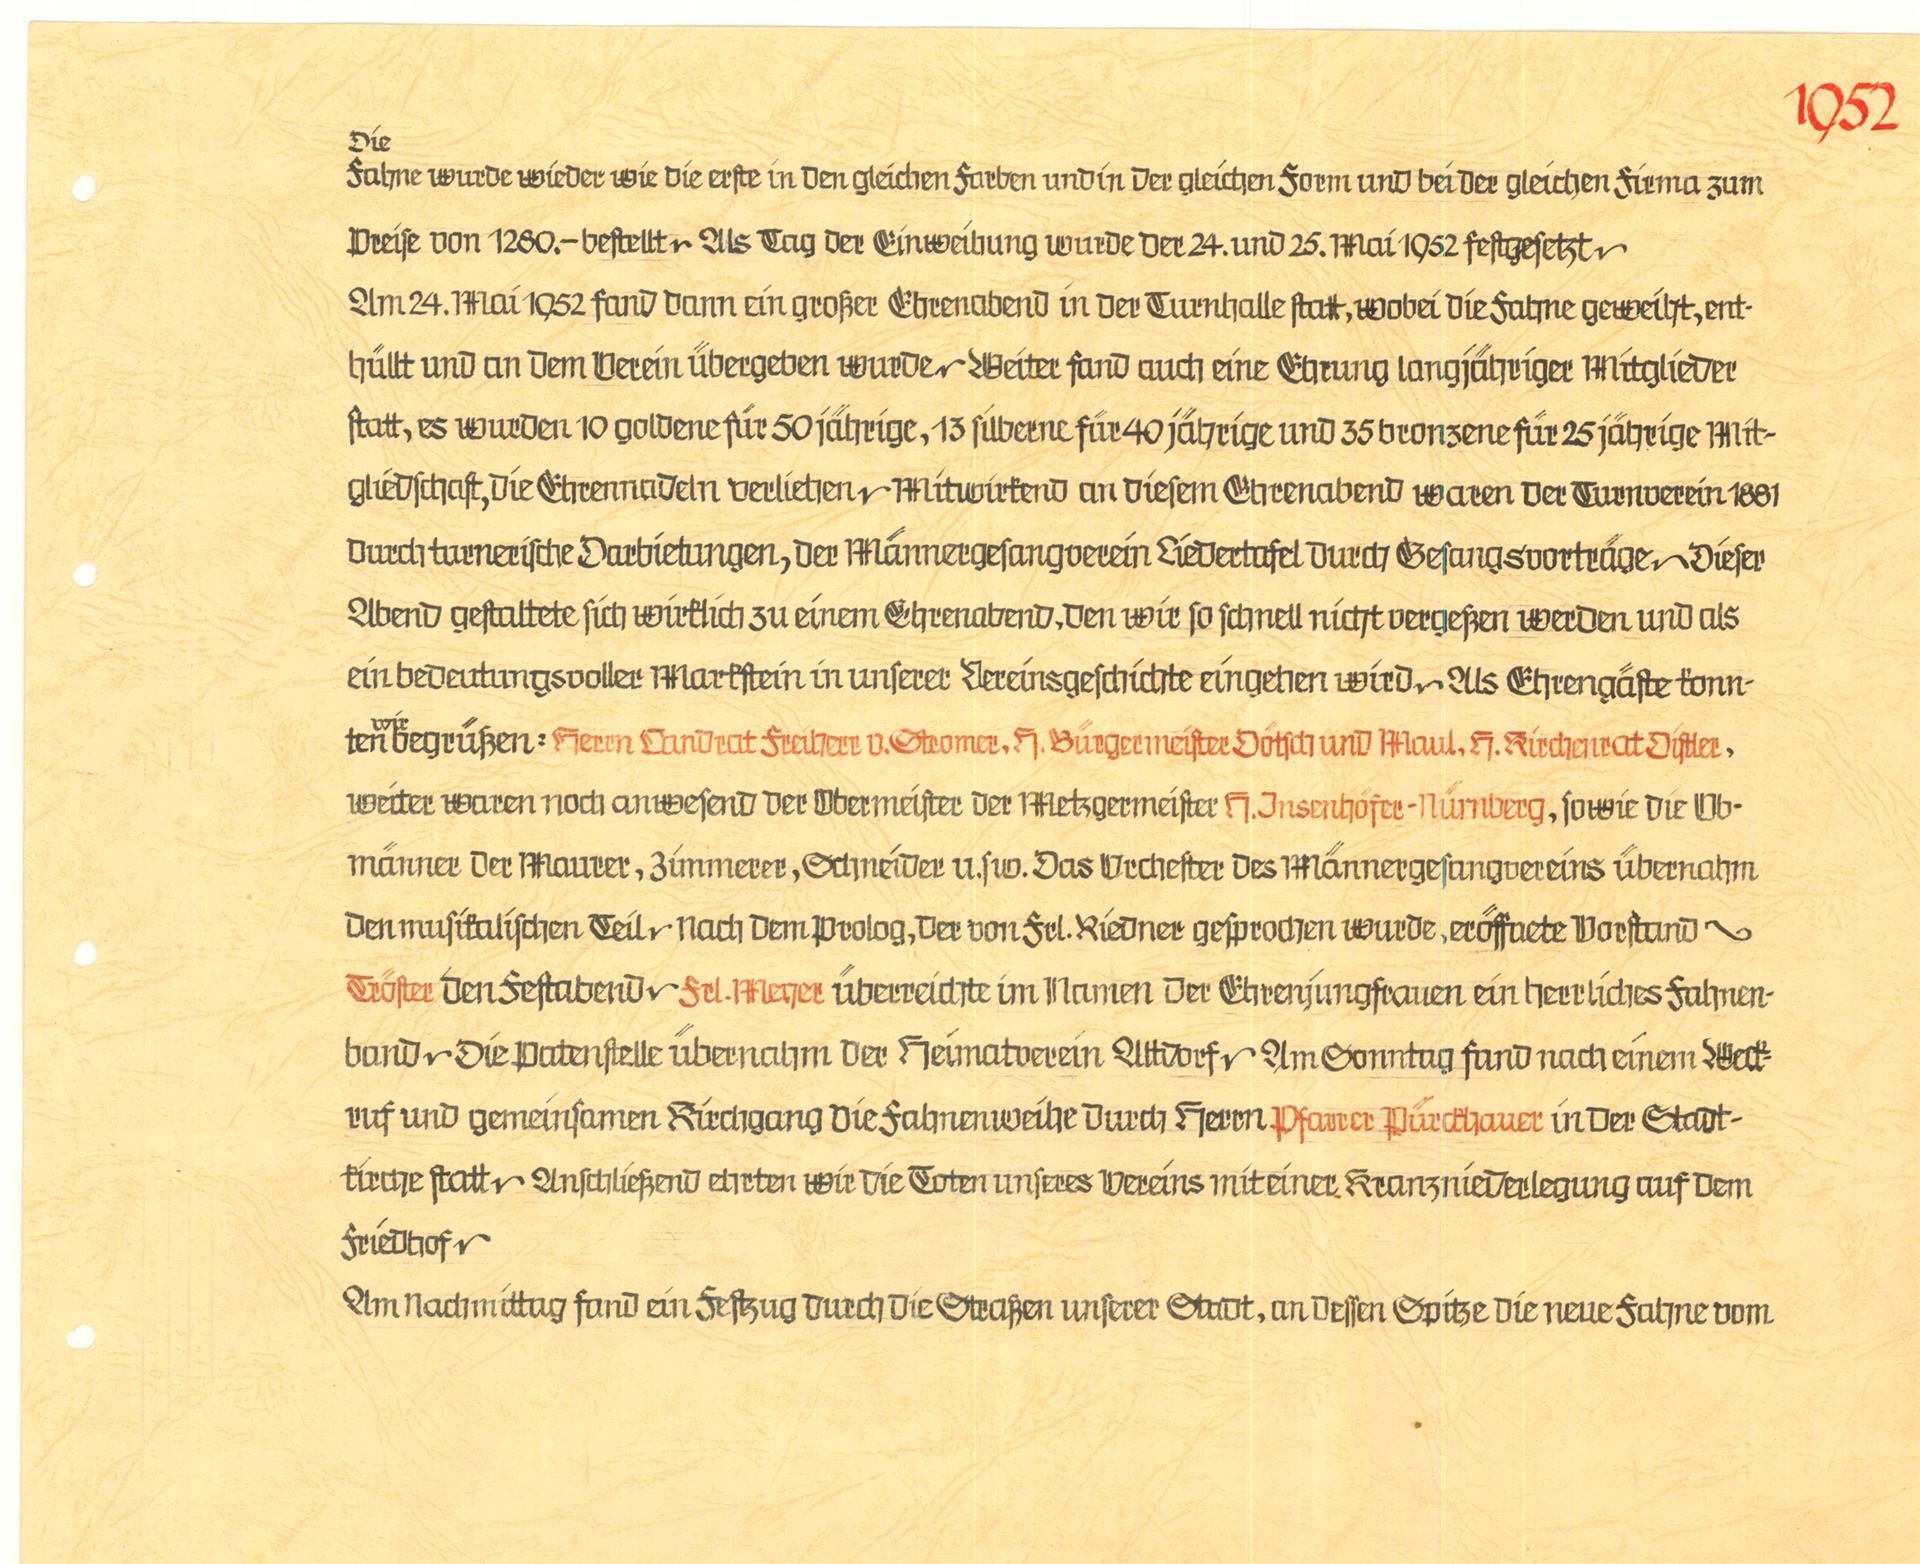 1952
Die
Fahne wurde wieder wie die erste in den gleichen Farben und in der gleichen Form und bei der gleichen Firma zum
Preise von 1280.- bestellt. Als Tag der Einweihung wurde der 24. und 25. Mai 1952 festgesetzt.
Am 24. Mai 1952 fand dann ein großer Ehrenabend in der Turnhalle statt, wobei die Fahne geweiht, ent-
hüllt und an dem Verein übergeben wurde. Weiter fand auch eine Ehrung langjähriger Mitglieder
statt, es wurden 10 goldene für 50 jährige, 13 silberne für 40 jährige und 35 bronzene für 25 jährige Mit-
gliedschaft, die Ehrennadeln verliehen. Mitwirkend an diesem Ehrenabend waren der Turnverein 1881
durch turnerische Darbietungen, der Männergesangverein Liedertafel durch Gesangsvorträge. Dieser
Abend gestaltete sich wirklich zu einem Ehrenabend, den wir so schnell nicht vergeßen werden und als
ein bedeutungsvoller Markstein in unserer Vereinsgeschichte eingehen wird. Als Ehrengäste konn-
ten wir begrüßen: Herrn Landrat Freiherr v. Stromer, H. Bürgermeister Dötsch und Maul, H. Kirchenrat Distler,
weiter waren noch anwesend der Obermeister der Metzgermeister H. Insenhöfer-Nürnberg, sowie die Ob-
männer der Maurer, Zimmerer, Schneider u.s.w. Das Orchester des Männergesangvereins übernahm
den musikalischen Teil. Nach dem Prolog, der von Frl. Riedner gesprochen wurde, eröffnete Vorstand
Tröster den Festabend. Frl. Meyer überreichte im Namen der Ehrenjungfrauen ein herrliches Fahnen-
band. Die Patenstelle übernahm der Heimatverein Altdorf. Am Sonntag fand nach einem Weck-
ruf und gemeinsamen Kirchgang die Fahnenweihe durch Herrn Pfarrer Pürckhauer in der Stadt-
kirche statt. Anschließend ehrten wir die Toten unseres Vereins mit einer Kranzniederlegung auf dem
Friedhof.
Am Nachmittag fand ein Festzug durch die Straßen unserer Stadt, an dessen Spitze die neue Fahne vom